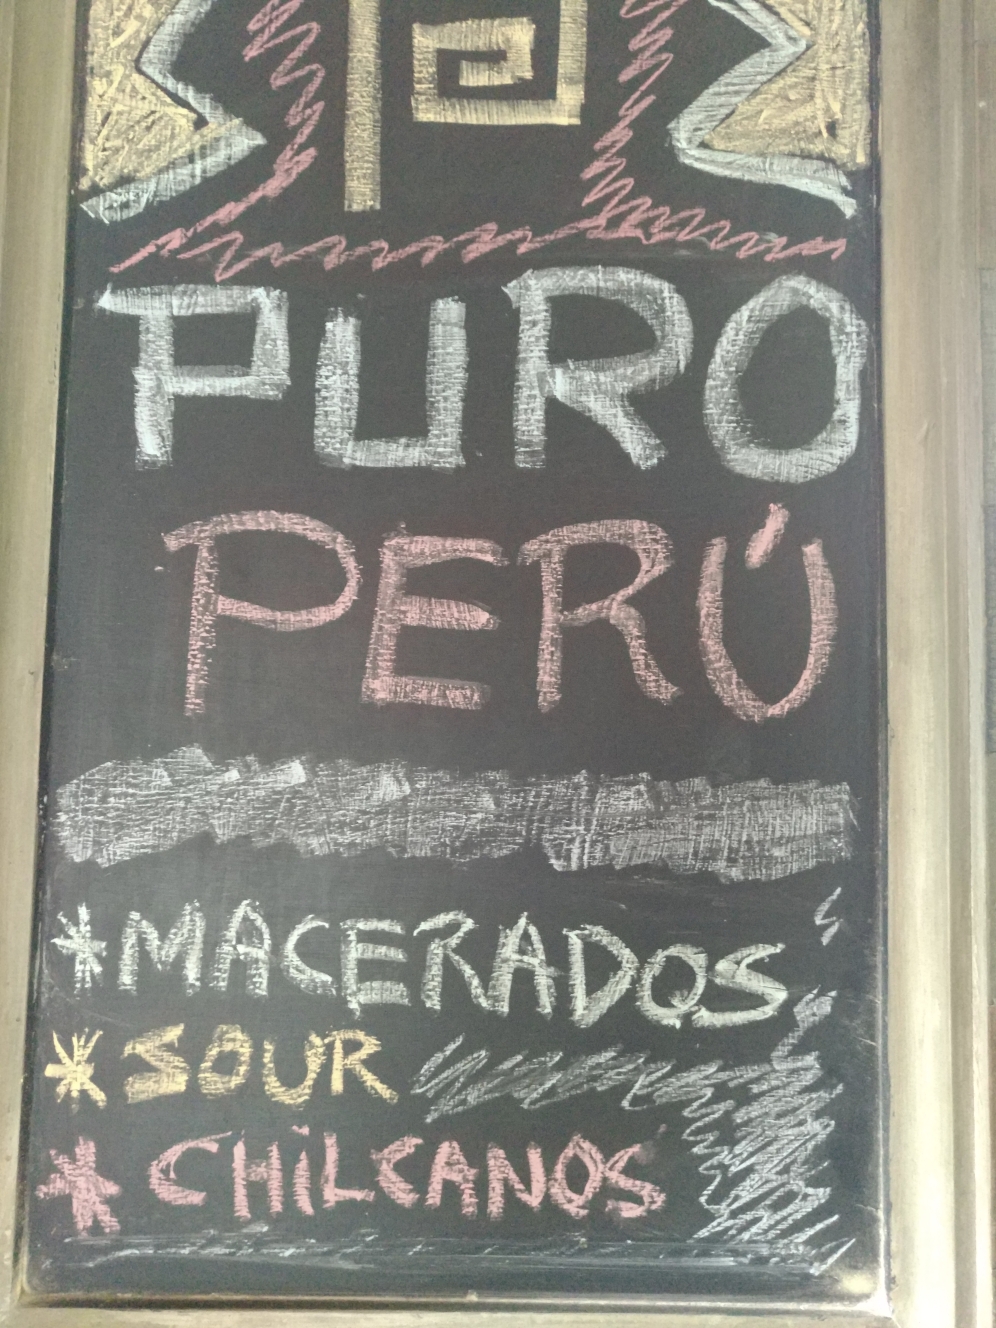 PURO
PERÚ
*MACERADOS
*SOUR
*CHiLCANOS